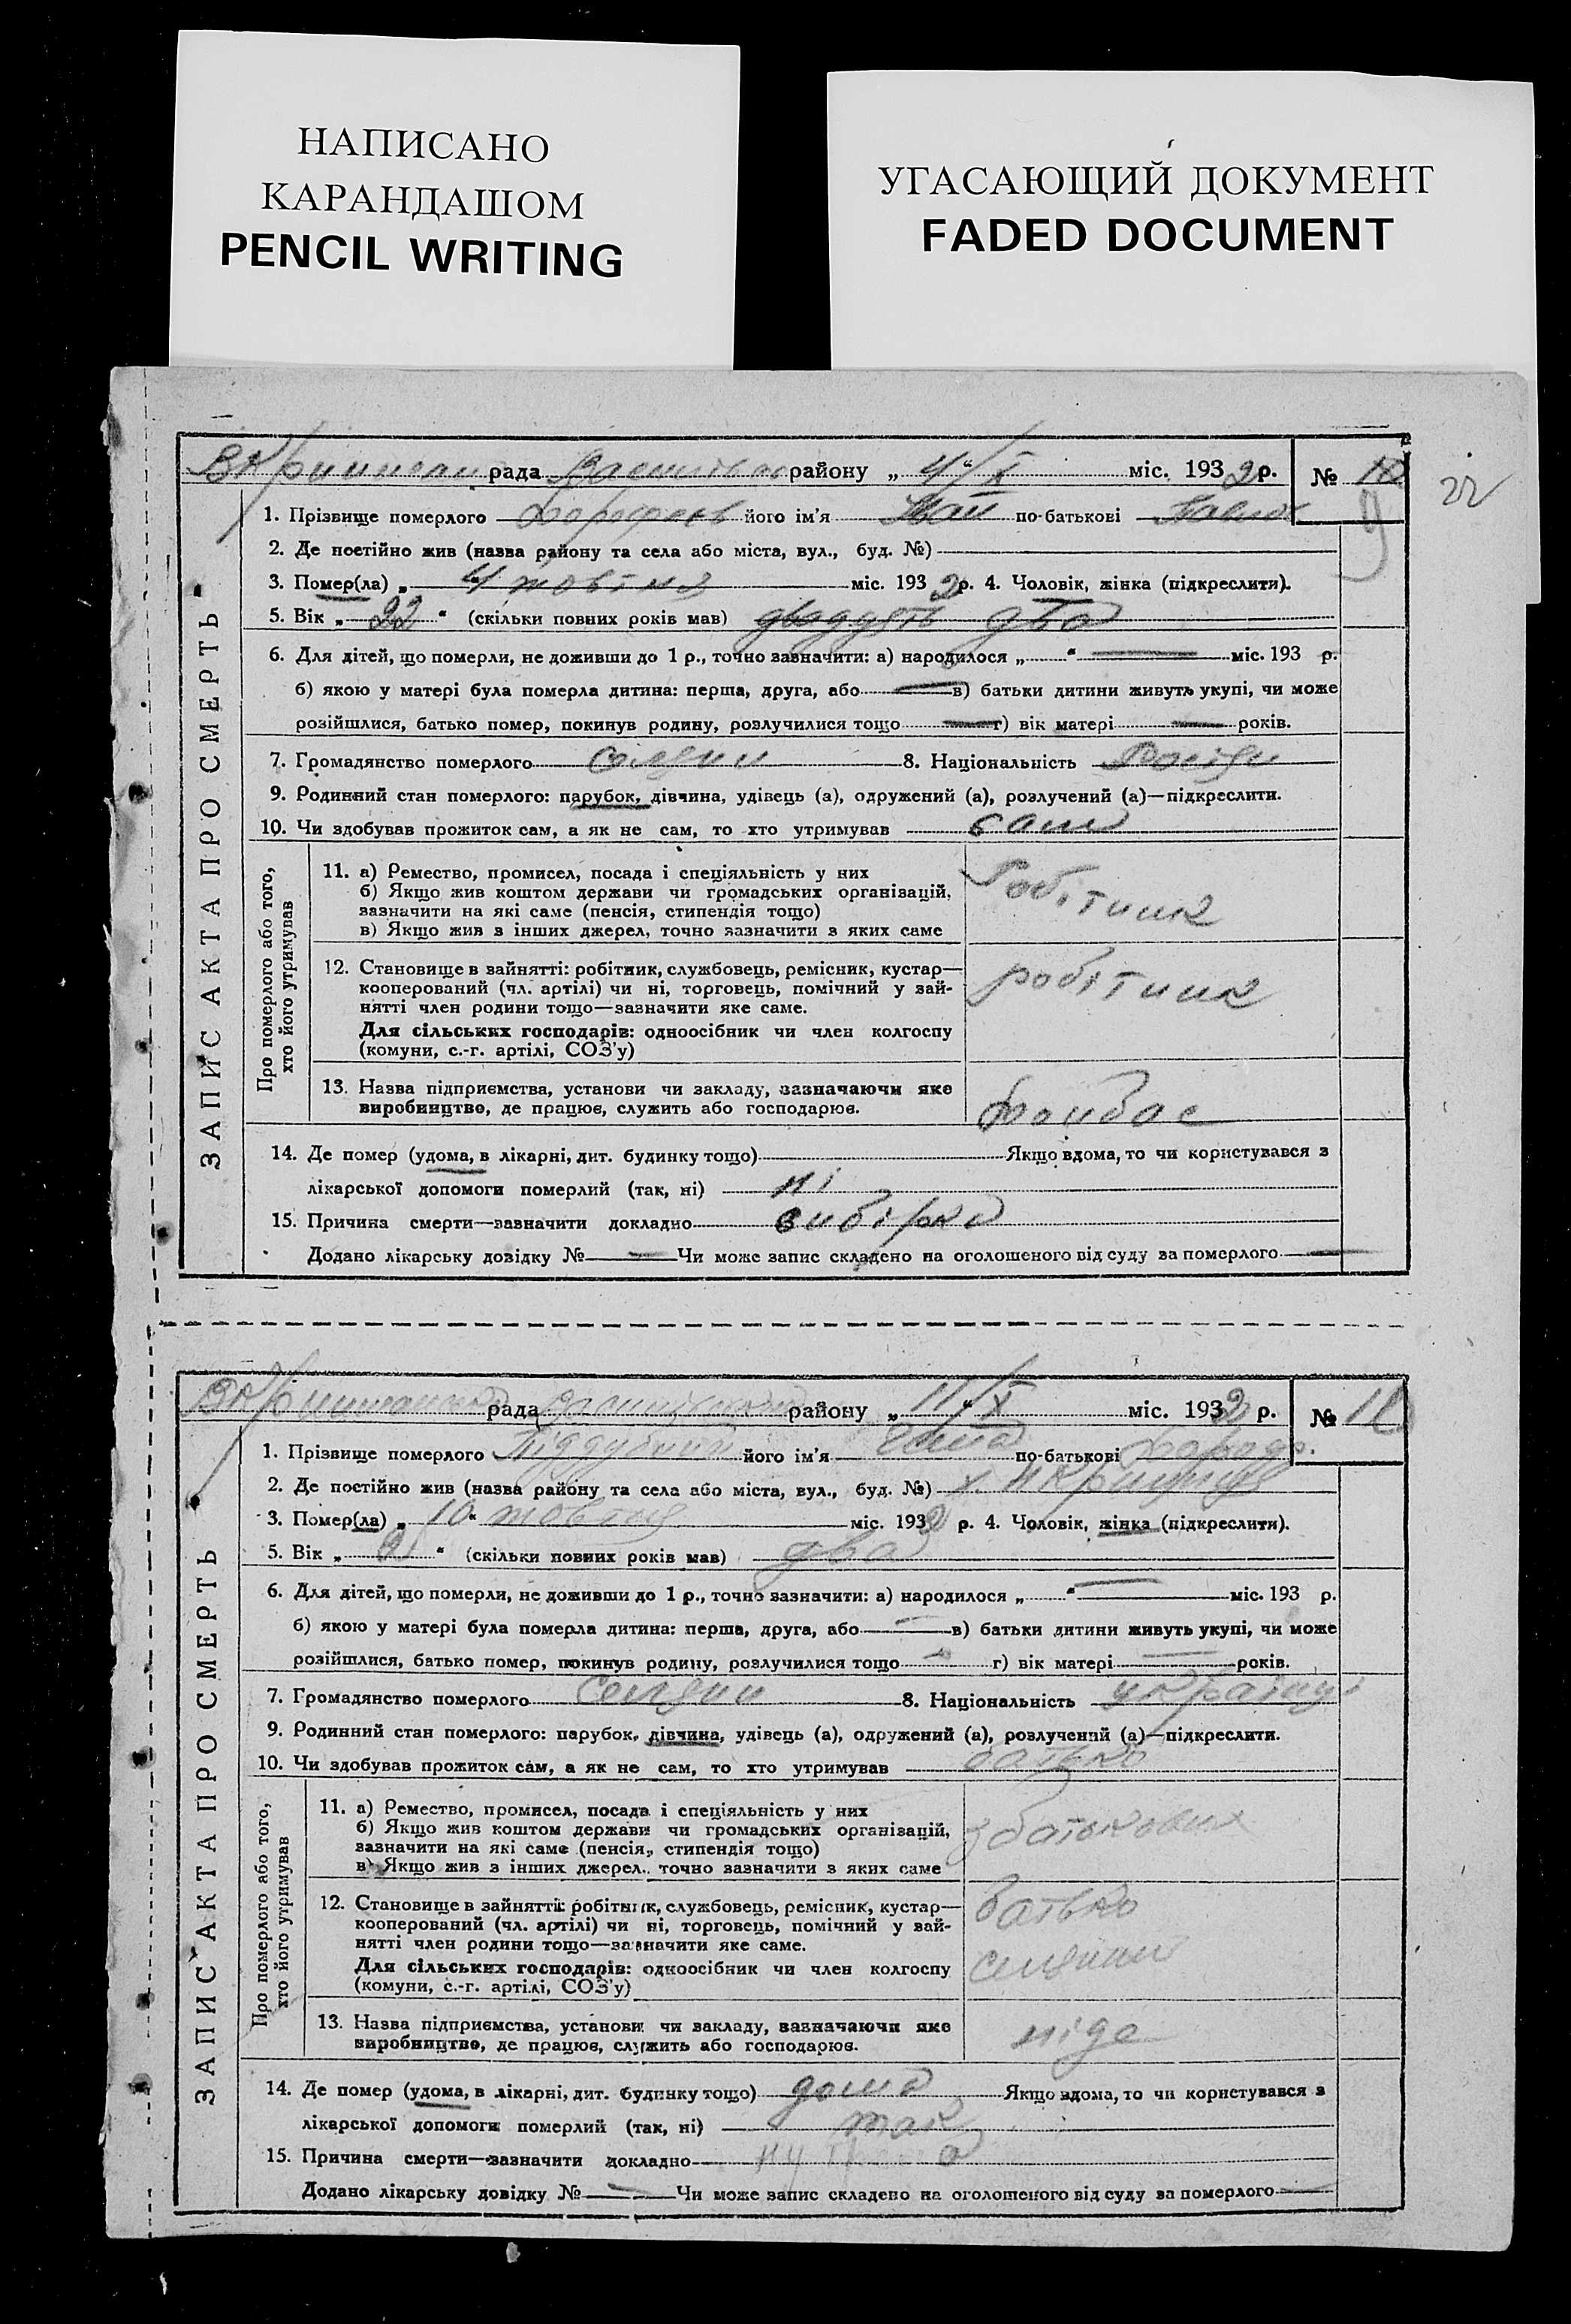 НАПИСАНО
КАРАНДАШОМ
PENCIL WRITING
УГАСАЮЩИЙ ДОКУМЕНТ
FADED DOCUMENT
22
ЗАПИС АКТА ПРО СМЕРТЬ
рада району „ 4 “ X міс. 1932 р. № 10
1. Прізвище померлого Дорофеєв його ім'я Іван по-батькові Павлов
2. Де постійно жив (назва району та села або міста, вул., буд. №)
3. Помер(ла) „ 4 “ жовтня міс. 1932 р. 4. Чоловік, жінка (підкреслити).
5. Вік „ 22 “ (скільки повних років мав) двадцять два
6. Для дітей, що померли, не доживши до 1 р., точно зазначити: а) народилося „ “ міс. 193 р.
б) якою у матері була померла дитина: перша, друга, або в) батьки дитини живуть укупі, чи може
розійшлися, батько помер, покинув родину, розлучилися тощо г) вік матері років.
7. Громадянство померлого 8. Національність
9. Родинний стан померлого: парубок, дівчина, удівець (а), одружений (а), розлучений (а)—підкреслити.
10. Чи здобував прожиток сам, а як не сам, то хто утримував сам
Про померлого або того,
хто його утримував
11. а) Ремество, промисел, посада і спеціяльність у них
б) Якщо жив коштом держави чи громадських організацій,
зазначити на які саме (пенсія, стипендія тощо)
в) Якщо жив з інших джерел, точно зазначити з яких саме
Робітник
12. Становище в зайнятті: робітник, службовець, ремісник, кустар—
кооперований (чл. артілі) чи ні, торговець, помічний у зай-
нятті член родини тощо—зазначити яке саме.
Для сільських господарів: одноосібник чи член колгоспу
(комуни, с.-г. артілі, СОЗ'у)
робітник
13. Назва підприємства, установи чи закладу, зазначаючи яке
виробництво, де працює, служить або господарює.
Донбас
14. Де помер (удома, в лікарні, дит. будинку тощо) Якщо вдома, то чи користувався з
лікарської допомоги померлий (так, ні) ні
15. Причина смерти—зазначити докладно
Додано лікарську довідку № Чи може запис складено на оголошеного від суду за померлого
ЗАПИС АКТА ПРО СМЕРТЬ
рада району „ 11 “ X міс. 1932 р. № 11
1. Прізвище померлого Піддубний його ім'я по-батькові
2. Де постійно жив (назва району та села або міста, вул., буд. №) х.
3. Помер(ла) „ 10 “ жовтня міс. 1932 р. 4. Чоловік, жінка (підкреслити).
5. Вік „ 2 “ (скільки повних років мав) два
6. Для дітей, що померли, не доживши до 1 р., точно зазначити: а) народилося „ “ міс. 193 р.
б) якою у матері була померла дитина: перша, друга, або в) батьки дитини живуть укупі, чи може
розійшлися, батько помер, покинув родину, розлучилися тощо г) вік матері років.
7. Громадянство померлого 8. Національність
9. Родинний стан померлого: парубок, дівчина, удівець (а), одружений (а), розлучений (а)—підкреслити.
10. Чи здобував прожиток сам, а як не сам, то хто утримував батько
Про померлого або того,
хто його утримував
11. а) Ремество, промисел, посада і спеціяльність у них
б) Якщо жив коштом держави чи громадських організацій,
зазначити на які саме (пенсія, стипендія тощо)
в) Якщо жив з інших джерел, точно зазначити з яких саме
з батькових
12. Становище в зайнятті: робітник, службовець, ремісник, кустар—
кооперований (чл. артілі) чи ні, торговець, помічний у зай-
нятті член родини тощо—зазначити яке саме.
Для сільських господарів: одноосібник чи член колгоспу
(комуни, с.-г. артілі, СОЗ'у)
батько
13. Назва підприємства, установи чи закладу, зазначаючи яке
виробництво, де працює, служить або господарює.
ніде
14. Де помер (удома, в лікарні, дит. будинку тощо) дома Якщо вдома, то чи користувався з
лікарської допомоги померлий (так, ні) так
15. Причина смерти—зазначити докладно
Додано лікарську довідку № Чи може запис складено на оголошеного від суду за померлого